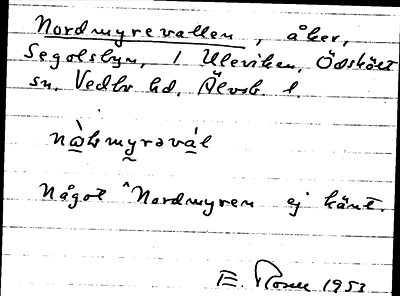 Nordmyrevallen, åker,
Segolsbyn, i Uleviken, Ödsköls
sn. Vedbo hd. Älvsb l.
nòḷmyravál
Något ^Nordmyren ej känt.
E. Rosell 1953